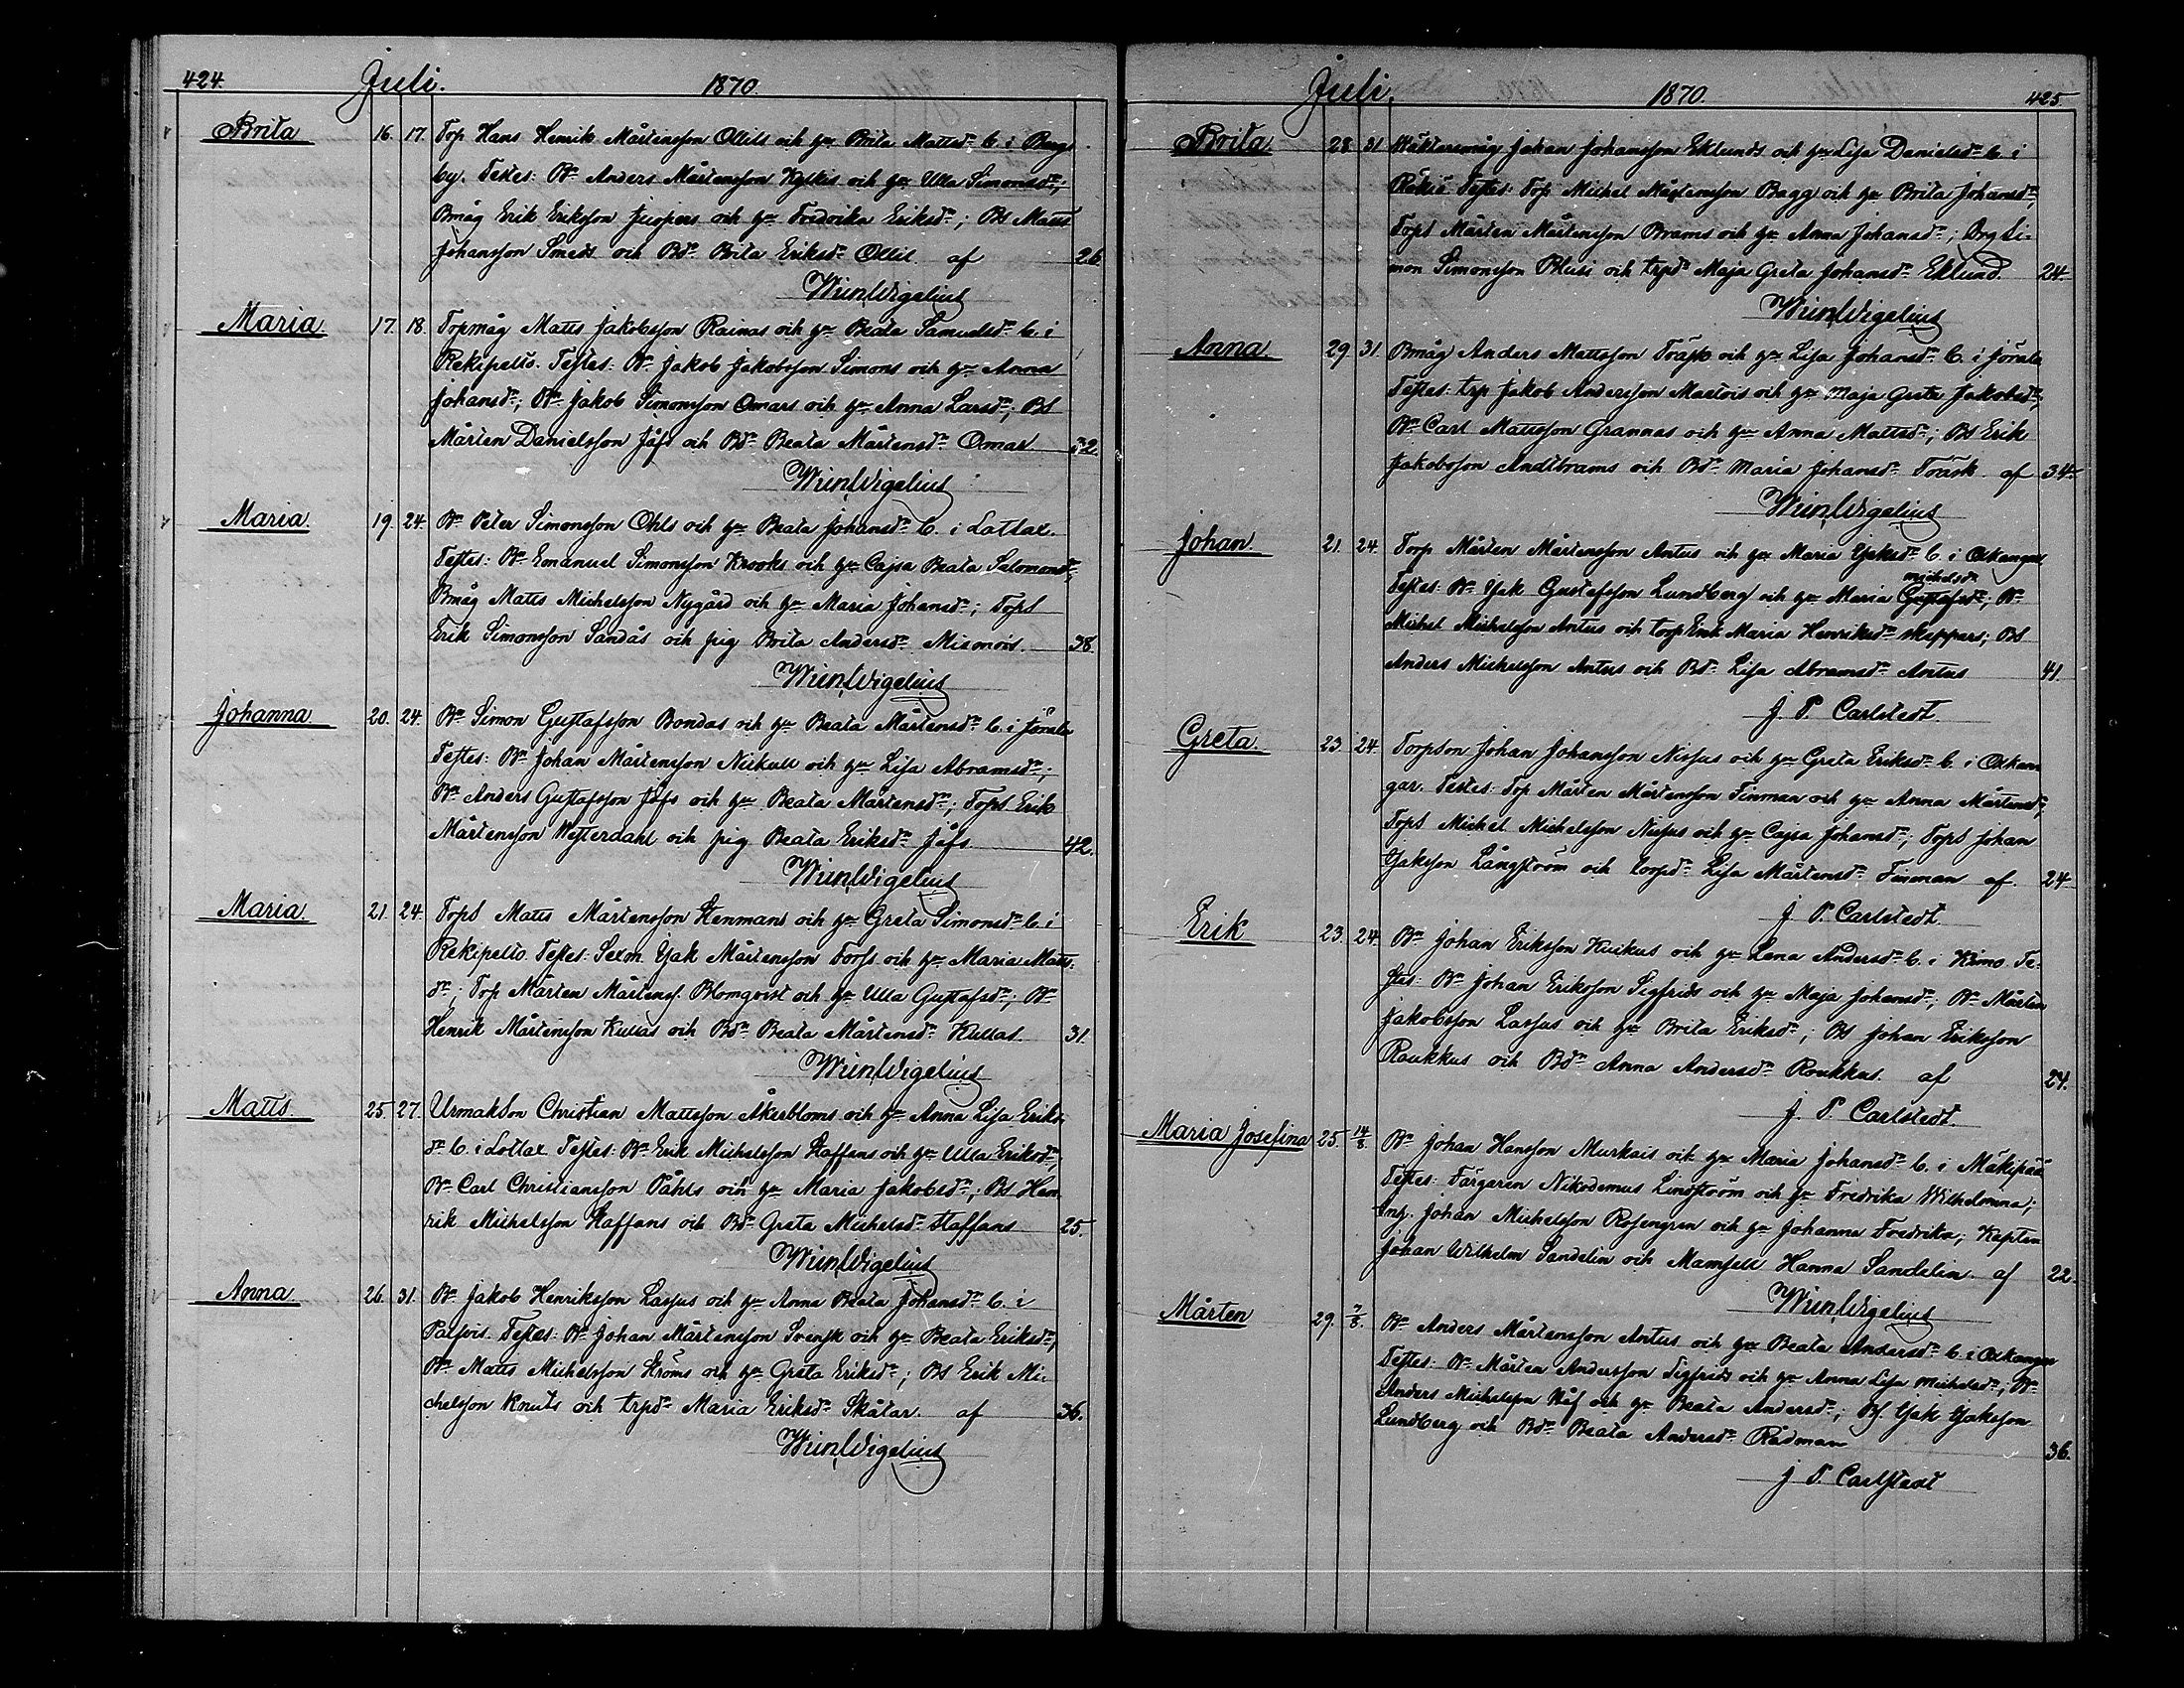 424. Juli. 1870.
Brita 16. 17. Torp Hans Henrik Mårtensson Ollils och hu Brita Mattsdr b. i Bergs
by. Testes: Bn Anders Mårtensson Kylkis och hu Ulla Simonsdr;
Bmåg Erik Eriksson Juspers och hu Fredrika Eriksdr; BS Matts
Johansson Smeds och Bdr Brita Eriksdr Ollil af 26.
Wigelius
Maria. 17. 18. Torpmåg Matts Jakobsson Rainas och hu Beata Samuelsdr b. i
Rekipelto. Testes: Bn Jakob Jakobsson Simons och hu Anna
Johansdr; Bn Jakob Simonsson Omars och hu Anna Larsdr; BS
Mårten Danielsson Jåfs och Bdr Beata Mårtensdr Omar 32.
Wigelius
Maria. 19. 24. Bn Peter Simonsson Ohls och hu Beata Johansdr b. i Lottax.
Testes: Bn Emanuel Simonsson Krooks och hu Cajsa Beata Salomonsdr;
Bmåg Matts Michelsson Nygård och hu Maria Johansdr; TorpS
Erik Simonsson Sandås och pig Brita Andersdr 38.
Wigelius
Johanna 20. 24. Bn Simon Gustafsson Bondas och hu Beata Mårtensdr b. i Jörala
Testes: Bn Johan Mårtensson Nickull och hu Lisa Abramsdr;
Bn Anders Gustafsson Jåfs och hu Beata Mårtensdr; TorpS Erik
Mårtensson Westerdahl och pig Beata Eriksdr Jåfs 42.
Wigelius
Maria. 21. 24. TorpS Matts Mårtensson Stenmans och hu Greta Simonsdr b. i
Rekipelto. Testes: Sexm. Isak Mårtensson Forss och hu Maria Matts-
dr; Torp Mårten Mårtenss. Blomqvist och hu Ulla Gustafsdr; Bn
Henrik Mårtensson Kullas och Bdr Beata Mårtensdr Kullas 31.
Wigelius
Matts. 25. 27. UrmakSon Christian Mattsson Åkerbloms och hu Anna Lisa Eriks-
dr b. i Lottax Testes: Bn Erik Michelsson Staffans och hu Ulla Eriksdr;
Bn Carl Christiansson Påhls och hu Maria Jakobsdr; BS Hen
rik Michelsson Staffans och Bdr Greta Michelsdr Staffans 25.
Wigelius
Anna. 26. 31. Bn Jakob Henriksson Lassus och hu Anna Beata Johansdr b. i
Palvis. Testes: Bn Johan Mårtensson Svensk och hu Beata Eriksdr;
Bn Matts Michelsson Ströms och hu Greta Eriksdr; BS Erik Mi-
chelsson Knuts och trpdr Maria Eriksdr Skåtar. af 36.
Wigelius
Juli. 1870. 425
Brita 28 31 Wäktaremåg Johan Johansson Eklunds och hu Lisa Danielsdr b. i
Testes: Torp Michel Mårtensson Bagg och hu Brita Johansdr;
TorpS Mårten Mårtensson Brams och hu Anna Johansdr; Drg Si-
mon Simonsson Blusi och trpdr Maja Greta Johansdr Eklund. 24.
Wigelius
Anna. 29. 31. Bmåg Anders Mattsson Träsk och hu Lisa Johansdr b. i Jörala
Testes: trp Jakob Andersson Martois och hu Maja Greta Jakobsdr;
Bn Carl Mattsson Grannas och hu Anna Mattsdr; BS Erik
Jakobsson Andtbrams och Bdr Maria Johansdr Träsk af 34.
Wigelius
Johan. 21. 24. Torp Mårten Mårtensson Antus och hu Maria Isaksdr b. i Oxkangar
michelsdr
Testes: Bn Isak Gustafsson Lundberg och hu Maria Gustafsdr; Bn
Michel Michelsson Antus och torpEnk Maria Henriksdr Skeppars; BS
Anders Michelsson Antus och Bdr Lisa Abramsdr Antus 41.
J. P. Carlstedt
Greta. 23. 24. Torpson Johan Johansson Nissus och hu Greta Eriksdr b. i Oxkan
gar. Testes: Torp Mårten Mårtensson Finman och hu Anna Mårtensdr;
TorpS Michel Michelsson Nissus och hu Cajsa Johansdr; TorpS Johan
Isaksson Långström och torpdr Lisa Mårtensdr Finman af 24
J. P. Carlstedt.
Erik 23. 24. Bn Johan Eriksson Kuikus och hu Lena Andersdr b. i Kimo. Te-
stes: Bn Johan Eriksson Sigfrids och hu Maja Johansdr; Bn Mårten
Jakobsson Lassus och hu Brita Eriksdr; BS Johan Eriksson
Roukkus och Bdr Anna Andersdr Roukkus. af 24.
J. P. Carlstedt.
Maria Josefina 25. 14/8. Bn Johan Hansson Murkais och hu Maria Johansdr b. i Mäkipää
Testes: Färgaren Nikodemus Lindström och hu Fredrika Wilhelmina;
Ing. Johan Michelsson Rosengren och hu Johanna Fredrika; Kapten
Johan Wilhelm Sandelin och Mamsell Hanna Sandelin af 22.
Wigelius
Mårten 29. 7/8. Bn Anders Mårtensson Antus och hu Beata Andersdr b. i Oxkangar
Testes: Bn Mårten Andersson Sigfrids och hu Anna Lisa Michelsdr; Bn
Anders Michelsson Råf och hu Beata Andersdr; BS. Isak Isaksson
Lundberg och Bdr Beata Andersdr Rådman 36.
J. P. Carlstedt